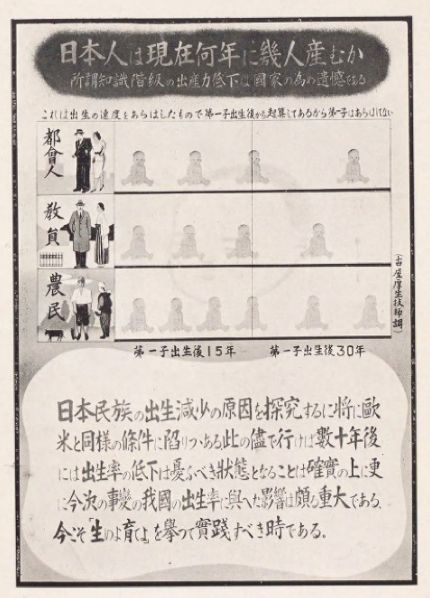 日本人は現在何年に幾人産むか
所謂知識階級の出産力低下は國家の為の遺憾である
これは出生の速度をあらはしたもので第一子出生後から起算してあるから第一子はあらはしてない
都會人
教員
農民
(古屋厚生技師調)
第一子出生後15年
第一子出生後30年
日本民族の出生減少の原因を探究するに将に歐
米と同様の條件に陥りつゝある、此の儘で行けば數十年後
には出生率の低下は憂ふべき狀態となることは確實の上に更
に今次の事変の我國の出生率に與へた影響は頗る重大である、
今こそ「生めよ育てよ」を擧つて實践すべき時である。